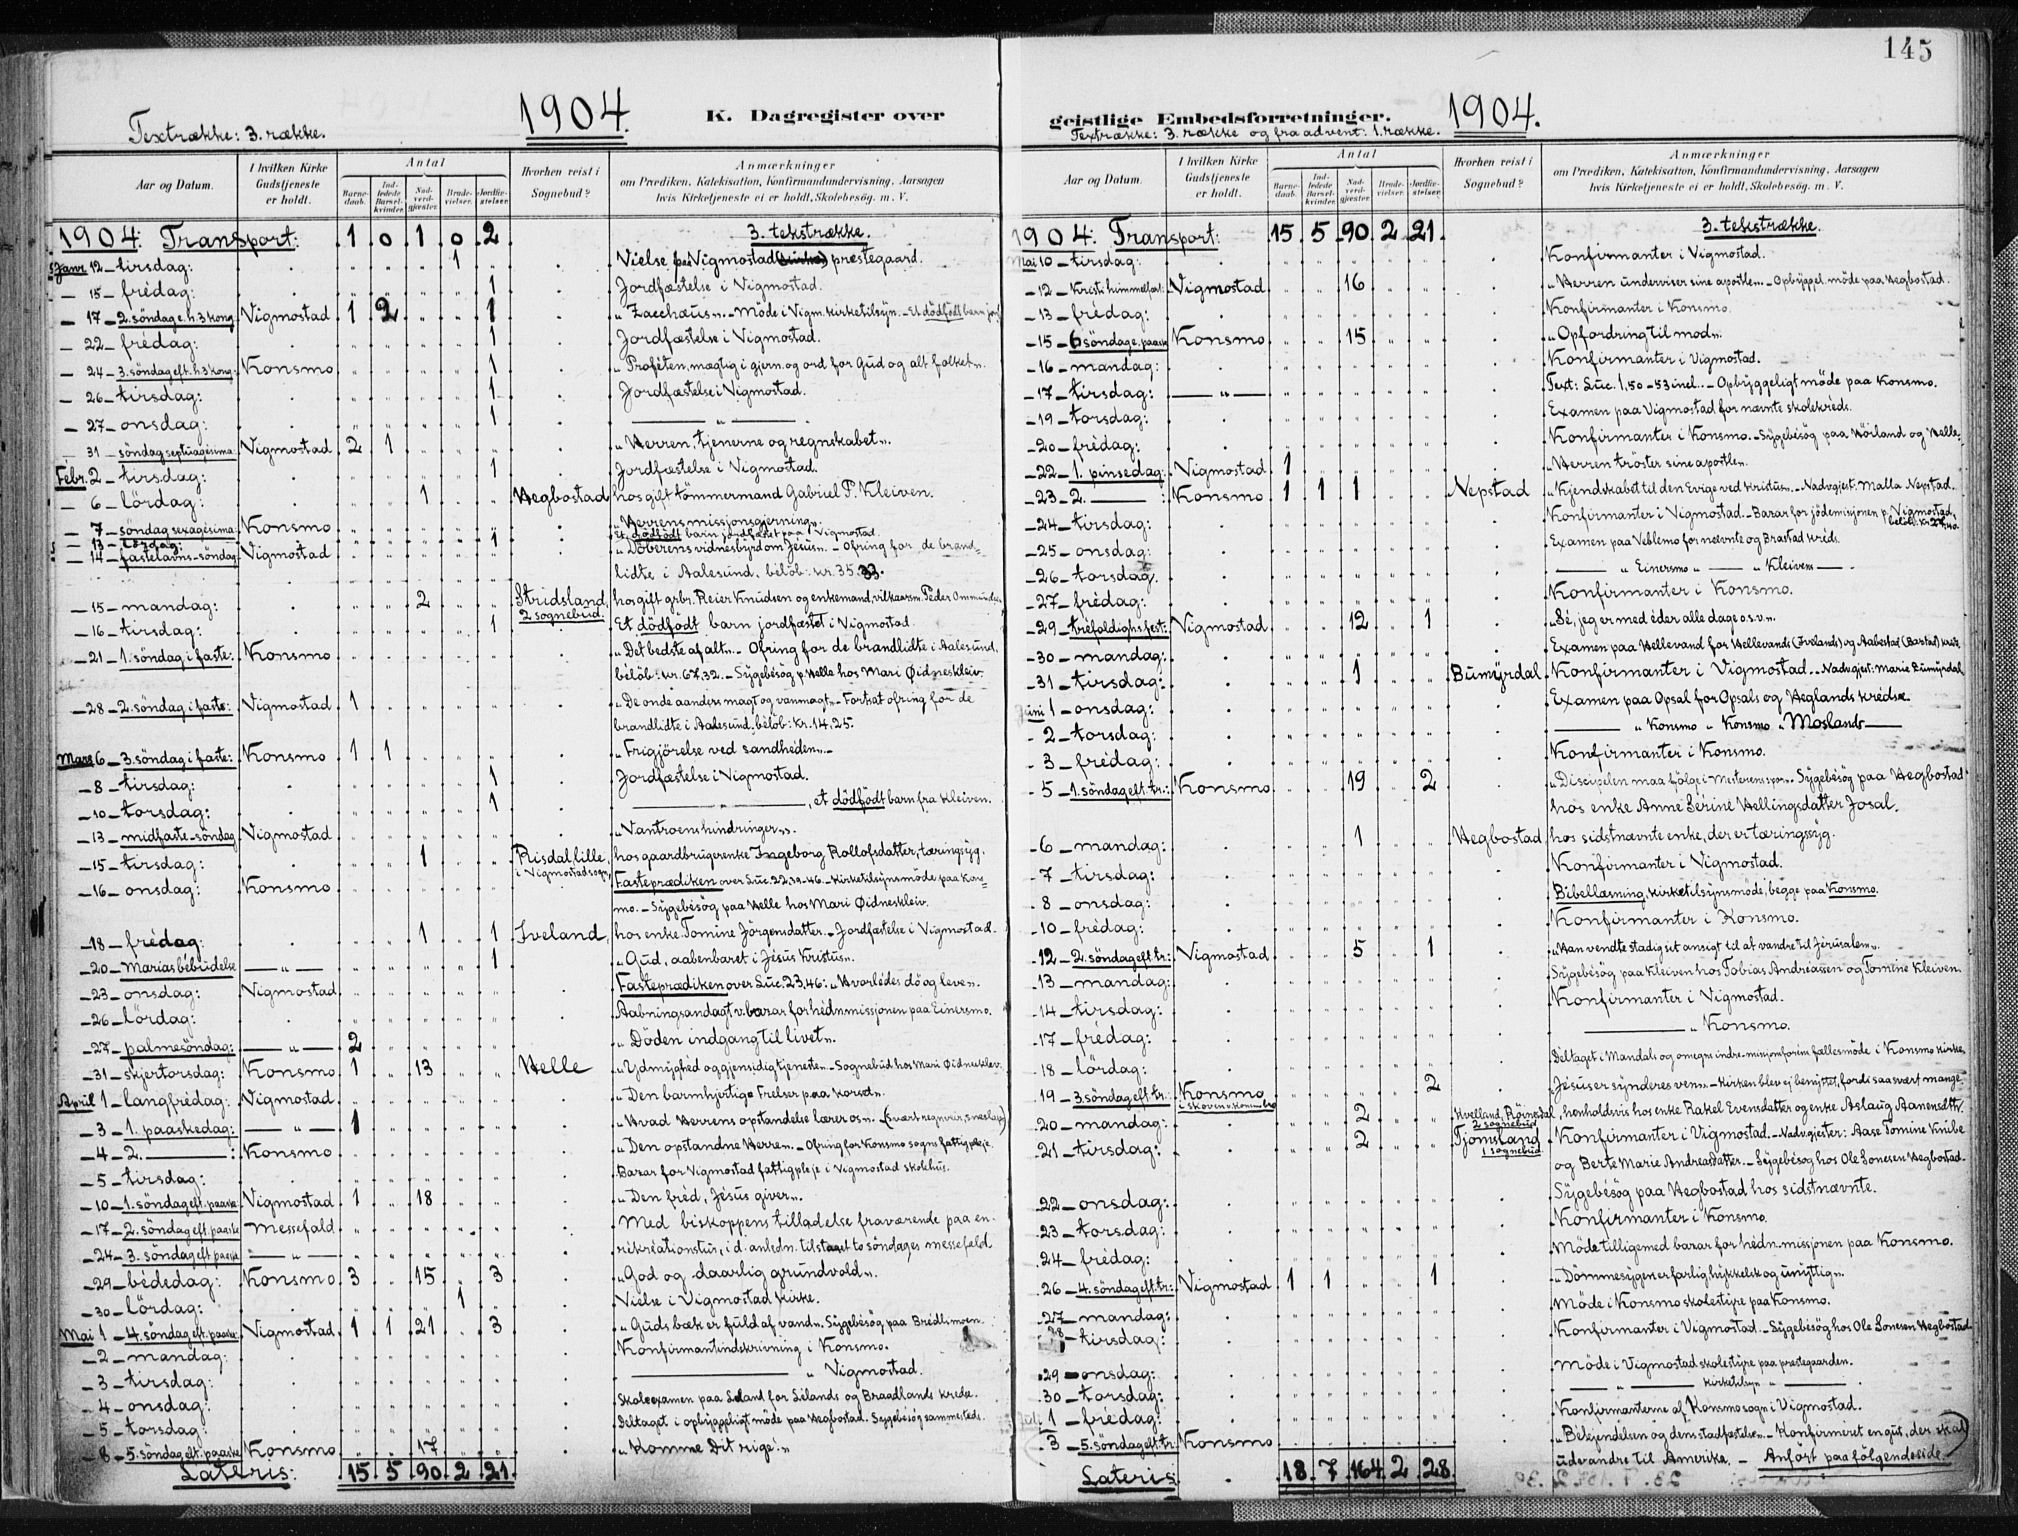 145
1904.
K. Dagregister over
Textrække: 3. række.
Aar og Datum.
I hvilken Kirke Gudstjeneste er holdt.
Antal
Barnedaab.
Indledede Barselkvinder.
Nadverdgjæster.
Brudevielser.
Jordfæstelser.
Hvorhen reist i Sognebud?
Anmærkninger
om Prædiken, Katekisation, Konfirmandundervisning, Aarsagen
hvis Kirketjeneste ei er holdt, Skolebesøg. m. V.
1904: Transport: 1 0 1 0 2 3. tekstrække.
Janr. 12 - tirsdag: 1 Vielse paa Vigmostad præstegaard.
- 15 - fredag: 1 Jordfæstelse i Vigmostad.
- 17 - 2. söndag e. h. 3 kong: Vigmostad 1 2 1 "Zacchæus". - Möde i Vigm. kirketilsyn. - Et dödfödt barn jordf.
- 22 - fredag: 1 Jordfæstelse i Vigmostad.
- 24 - 3. söndag eft. h. 3 kong: Konsmo "Profeten, mægtig i gjern. og ord for Gud og alt folket".
- 26 - tirsdag: 1 Jordfæstelse i Vigmostad.
- 27 - onsdag: 1 — " —
- 31 - söndag septuagesima: Vigmostad 2 1 "Herren, tjenerne og regnskabet".
Febr. 2 - tirsdag: 1 Jordfæstelse i Vigmostad.
- 6 - lördag: 1 Hegbostad, hos gift tömmermand Gabriel P. Kleiven.
- 7 - söndag sexagesima: Konsmo "Herrens missjonsgjerning".
- 13 - lördag: 1 Et dödfödt barn jordfæstet paa Vigmostad.
- 14 - fastelavns-söndag: Vigmostad "Döberens vidnesbyrd om Jesus". - Ofring for de brand-
lidte i Aalesund, belöb: kr. 35.33.
- 15 - mandag: 2 Stridsland, 2 sognebud. hos gift grbr. Reier Knudsen og enkemand, vilkaarsm. Peder Ommundsen
- 16 - tirsdag: 1 Et dödfödt barn jordfæstet i Vigmostad.
- 21 - 1. söndag i faste: Konsmo "Det bedste af alt". - Ofring for de brandlidte i Aalesund,
belöb: kr. 67,32. - Sygebesög p. Helle hos Mari Øidneskleiv.
- 28 - 2. söndag i faste: Vigmostad 1 "De onde aanders magt og vanmagt". - Fortsat ofring for de
brandlidte i Aalesund, belöb: kr. 14.25.
Mars 6 - 3. söndag i faste: Konsmo 1 1 "Frigjörelse ved sandheden". -
- 8 - tirsdag: 1 Jordfæstelse i Vigmostad.
- 10 - torsdag: 1 — , et dödfödt barn fra Kleiven.
- 13 - midfaste-söndag Vigmostad "Vantroens hindringer".
- 15 - tirsdag: 1 Risdal, lille, i Vigmostad sogn, hos gaardbrugerenke Ingeborg Rollofsdatter, tæringsyg.
- 16 - onsdag: Konsmo Fasteprædiken over Luc. 22.39-46. - Kirketilsynsmöde paa Kons-
mo. - Sygebesög paa Helle hos Mari Øidneskleiv.
- 18 - fredag: 1 1 Iveland, hos enke Tomine Jörgensdatter. - Jordfæstelse i Vigmostad.
- 20 - Marias bebudelse — " — 1 "Gud, aabenbaret i Jesus Kristus".
- 23 - onsdag: Vigmostad Fasteprædiken over Luc. 23.46: "Hvorledes dö og leve".
- 26 - lördag: Aabningsandagt v. bazar for hednmissjonen paa Einersmo.
- 27 - palmesöndag: — " — 2 "Döden indgang til livet".
- 31 - skjertorsdag: Konsmo 1 13 Helle "Ydmyghed og gjensidig tjeneste". - Sognebud hos Mari Øidneskleiv.
April 1 - langfredag: Vigmostad "Den barmhjertige Frelser paa korset".
- 3 - 1. paaskedag: — " — 1 "Hvad Herrens opstandelse lærer os".
- 4 - 2. — : Konsmo "Den opstandne Herre". - Ofring for Konsmo sogns fattigpleje.
- 5 - tirsdag: Bazar for Vigmostad fattigpleje i Vigmostad skolehus.
- 10 - 1. söndag eft. paaske: Vigmostad 1 18 "Den fred, Jesus giver".
- 17 - 2. söndag eft. paaske Messefald Med biskoppens tilladelse fraværende paa en
- 24 - 3. söndag eft. paaske — " — rekreationstur, i d. anledn. tilstaaet to söndages messefald
- 29 - bededag: Konsmo 3 15 3 "God og daarlig grundvold".
- 30 - lördag: 1 Vielse i Vigmostad kirke.
Mai 1 - 4. söndag eft. paaske: Vigmostad 1 1 21 3 "Guds bæk er fuld af vand". Sygebesög paa Bredlimoen.
- 2 - mandag: Konfirmantindskrivning i Konsmo.
- 3 - tirsdag: — " Vigmostad.
- 4 - onsdag: Skoleexamen paa Leland for Lelands og Braadlands kredse.
- 5 - torsdag: Deltaget i opbyggeligt möde paa Hegbostad. Sygebesög sammesteds.
- 8 - 5. söndag eft. paaske Konsmo 17 "Komme Dit rige!"
Lateris: 15 5 90 2 21
geistlige Embedsforretninger.
1904.
Textrække: 3. række og fra advent: 1. række.
Aar og Datum.
I hvilken Kirke Gudstjeneste er holdt.
Antal
Barnedaab.
Indledede Barselkvinder.
Nadverdgjæster.
Brudevielser.
Jordfæstelser.
Hvorhen reist i Sognebud?
Anmærkninger
om Prædiken, Katekisation, Konfirmandundervisning, Aarsagen
hvis Kirketjeneste ei er holdt, Skolebesøg. m. V.
1904: Transport: 15 5 90 2 21. 3. tekstrække.
Mai 10 - tirsdag: Konfirmanter i Vigmostad.
- 12 - Kristi himmelfart: Vigmostad 16 "Herren underviser sine apostle". - Opbyggel. möde paa Hegbostad.
- 13 - fredag: Konfirmanter i Konsmo.
- 15 - 6 söndag e. paaske Konsmo 15 "Opfordring til mod".
- 16 - mandag: Konfirmanter i Vigmostad.
- 17 - tirsdag: — " — Text: Luc. 1,50-53 incl. - Opbyggeligt möde paa Konsmo.
- 19 - torsdag: Examen paa Vigmostad for nævnte skolekreds.
- 20 - fredag: Konfirmanter i Konsmo. - Sygebesög paa Höiland og Helle.
- 22 - 1. pinsedag: Vigmostad 1 "Herren tröster sine apostle".
- 23 - 2. — : Konsmo 1 1 1 Nepstad "Kjendskabet til den Evige ved Kristus". - Nadvgjest: Malla Nepstad.
- 24 - tirsdag: Konfirmanter i Vigmostad. - Bazar for jödemisjonen p. Vigmostad,
- 25 - onsdag: Examen paa Veblemo for nævnte og Brastad kreds.
- 26 - torsdag. — " Einersmo " — " Kleivens — .
- 27 - fredag: Konfirmanter i Konsmo.
- 29 - trefoldighs fest: Vigmostad 12 1 "Se, jeg er med eder alle dage o.s.v.".
- 30 - mandag: Examen paa Hellevand for Hellevands (Ivelands) og Aabestad (Bastad) kreds
- 31 - tirsdag: 1 Bumyrdal Konfirmanter i Vigmostad. - Nadvgjest: Marie Bumyrdal
Juni 1 - onsdag: Examen paa Opsal for Opsals og Heglands kredse
- 2 - torsdag: — " Konsmo " Konsmo " Moslands —
- 3 - fredag: Konfirmanter i Konsmo.
- 5 - 1. söndag eft. tr.: Konsmo 19 2 "Discipelen maa fölge i Mesterens spor". Sygebesög paa Hegbostad
hos enke Anne Serine Hellingsdatter Josal.
- 6 - mandag: 1 Hegbostad, hos sidstnævnte enke, der er tæringssyg.
- 7 - tirsdag: Konfirmanter i Vigmostad.
- 8 - onsdag: Bibellæsning, kirketilsynsmöde, begge paa Konsmo.
- 10 - fredag: Konfirmanter i Konsmo.
- 12 - 2. söndag eft. tr: Vigmostad 5 1 "Han vendte stadig sit ansigt til at vandre til Jerusalem".
- 13 - mandag: Sygebesög paa Kleiven hos Tobias Andreassen og Tomine Kleiven.
- 14 - tirsdag: Konfirmanter i Vigmostad.
- 17 - fredag: — " Konsmo.
- 18 - lördag: Deltaget i Mandals og omegns indre-missjonsforen. fællesmöde i Konsmo kirke,
- 19 - 3. söndag eft. tr.: Konsmo i skoven v. Konsmo 2 "Jesus er synderes ven". - Kirken blev ej benyttet, fordi saa svært mange.
- 20 - mandag: 2 Kvelland, 2 sognebud, henholdsvis hos enke Rakel Evensdatter og enke Aslaug Aanensdtr.
- 21 - tirsdag: 2 Tjomsland 1 sognebud Konfirmanter i Vigmostad. - Nadvgjester: Aase Tomine Knibe
og Berte Marie Andreasdatter. - Sygebesög hos Ole Sonesen Hegbostad.
- 22 - onsdag: Sygebesög paa Hegbostad hos sidstnævnte.
- 23 - torsdag: Konfirmanter i Konsmo.
- 24 - fredag: Möde tilligemed bazar for hedn.missjonen paa Konsmo.
- 26 - 4. söndag eft. tr: Vigmostad 1 1 1 "Dömmesygen er farlig, hykkelsk og unyttig".
- 27 - mandag: Möde i Konsmo skolestyre paa Konsmo.
- 28 - tirsdag: Konfirmanter i Vigmostad. - Sygebesög hos Ole Sonesen Hegbostad
- 29 - onsdag: Möde i Vigmostad skolestyre paa prestegaarden.
- 30 - torsdag: — " — kirketilsyn " —
Juli 1 - fredag: Konfirmanterne af Konsmo sogn i Vigmostad.
- 3 - 5. söndag eft. tr: Konsmo "Bekjendelsen og dens stadfæstelse". - Konfirmeret en gut, der skal
udvandre til Amerika. - Anfört paa fölgende side.
Lateris 18 7 164 2 28